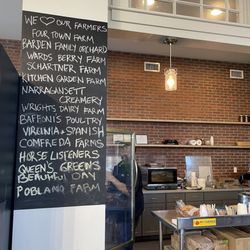 WE ♡ OUR FARMERS
FOUR TOWN FARM
BARDEN FAMILY ORCHARD
WARDS BERRY FARM
SCHARTNER FARM
KITCHEN GARDEN FARM
NARRAGANSETT
CREAMERY
WRIGHTS DAIRY FARM
BAFFONIS POULTRY
VIRGINIA & SPANISH
COMFREDA FARMS
HORSE LISTENERS
QUEEN'S GREENS
BEAUTIFUL DAY
POBLANO FARM